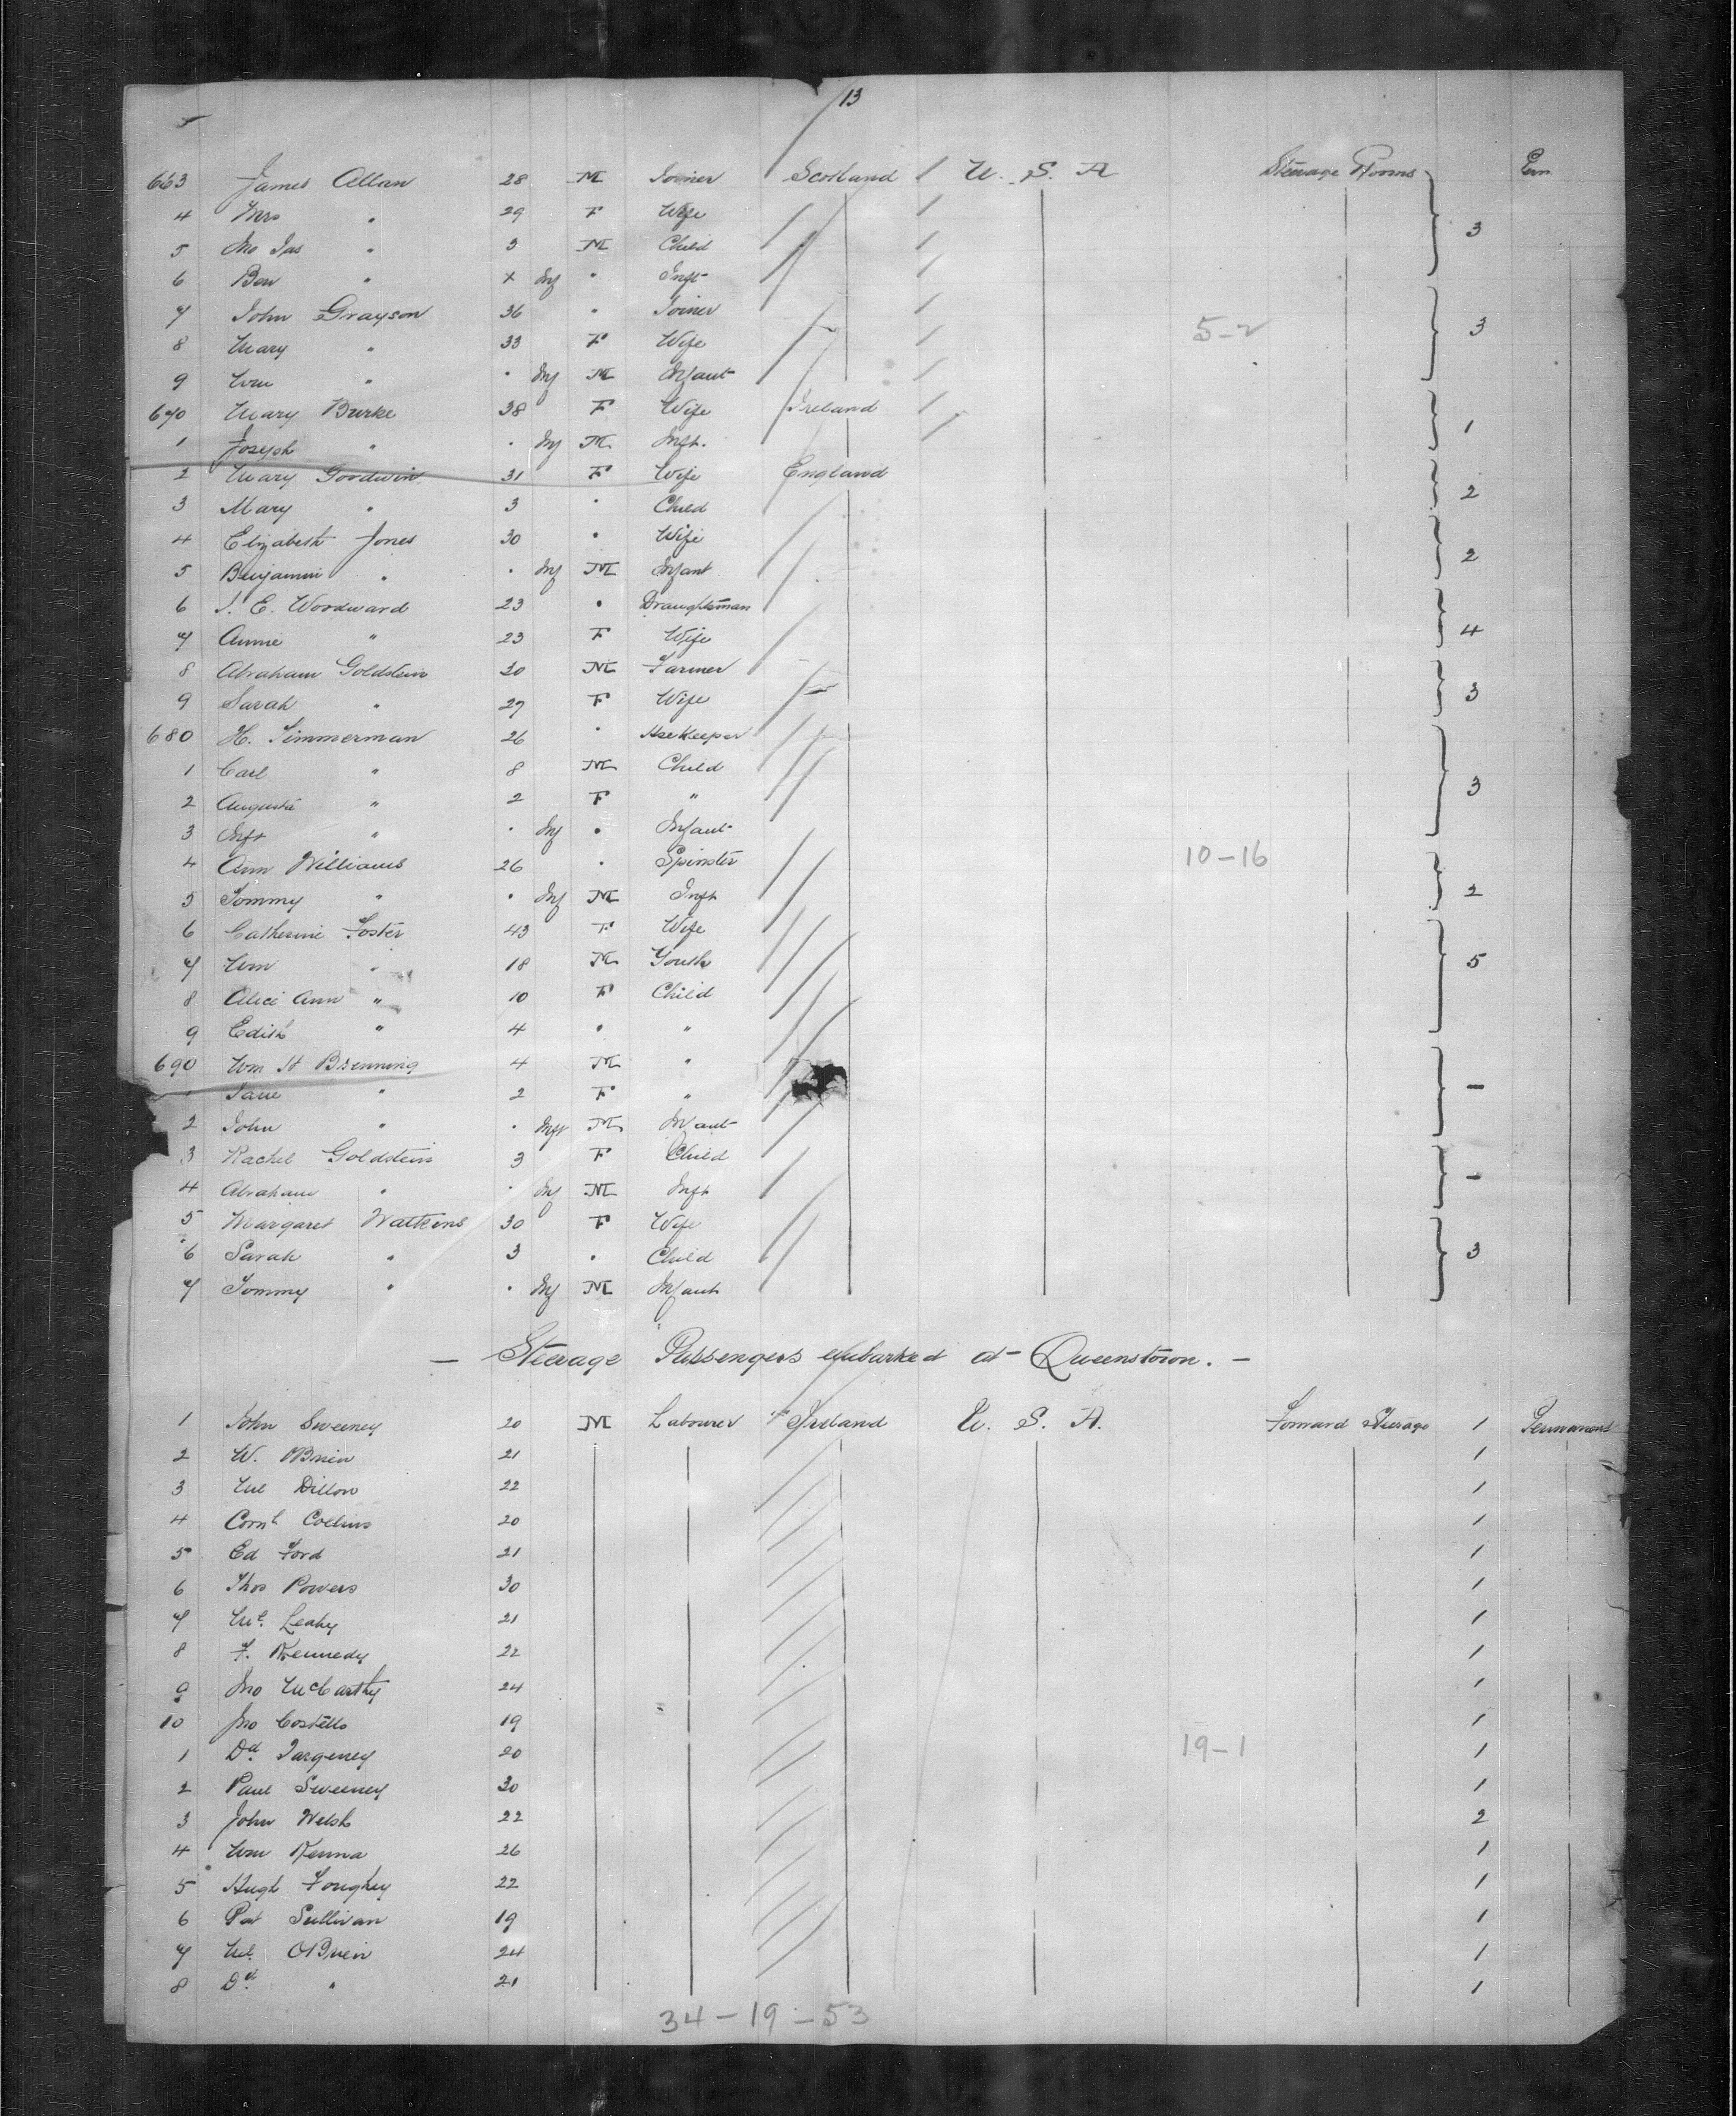 13
663 James Allan 28 M Joiner Scotland / U. S. A Steerage Rooms Perm
4 Mrs " 29 F Wife /
5 Jno Jas " 3 M Child / 3
6 Ben " x Inf " Inft /
7 John Grayson 36 " Joiner /
8 Mary " 33 F Wife / 5-2 3
9 Wm " " Inf M Infant /
670 Mary Burke 38 F Wife Ireland /
1 Joseph " " Inf M Inft. / 1
2 Mary Goodwin 31 F Wife England
3 Mary " 3 " Child 2
4 Elizabeth Jones 30 " Wife
5 Benjamin " " Inf M Infant 2
6 J. E. Woodward 23 " Draughtsman
7 Annie " 23 F Wife 4
8 Abraham Goldstein 30 M Farmer
9 Sarah " 27 F Wife 3
680 H. Timmerman 26 " Hsekeeper
1 Carl " 8 M Child
2 Auguste " 2 F " 3
3 Inft " " Inf " Infant
4 Ann Williams 26 " Spinster 10-16
5 Tommy " " Inf M Inft 2
6 Catherine Foster 43 F Wife
7 Wm " 18 M Youth 5
8 Alice Ann " 10 F Child
9 Edith " 4 " "
690 Wm H Brenning 4 M "
Jane " 2 F " -
2 John " " Inft M Infant
3 Rachel Goldstein 3 F Child
4 Abraham " " Inf M Inft -
5 Margaret Watkins 30 F Wife
6 Sarah " 3 " Child 3
7 Tommy " " Inf M Infant
- Steerage Passengers embarked at Queenstown. -
1 John Sweeney 20 M Labourer Ireland U. S. A. Forward Steerage 1 Permanent
2 W. OBrien 21 1
3 Ml Dillon 22 1
4 Cornl Collins 20 1
5 Ed Ford 21 1
6 Thos Powers 30 1
7 Ml. Leahy 21 1
8 F. Kennedy 22 1
9 Jno McCarthy 24 1
10 Jno Costello 19 1
1 Dd. Targeney 20 19-1 1
2 Paul Sweeney 30 1
3 John Welsh 22 2
4 Wm Kenna 26 1
5 Hugh Foughey 22 1
6 Pat Sullivan 19 1
7 Ml. OBrien 24 1
8 Dd " 21 1
34-19-53